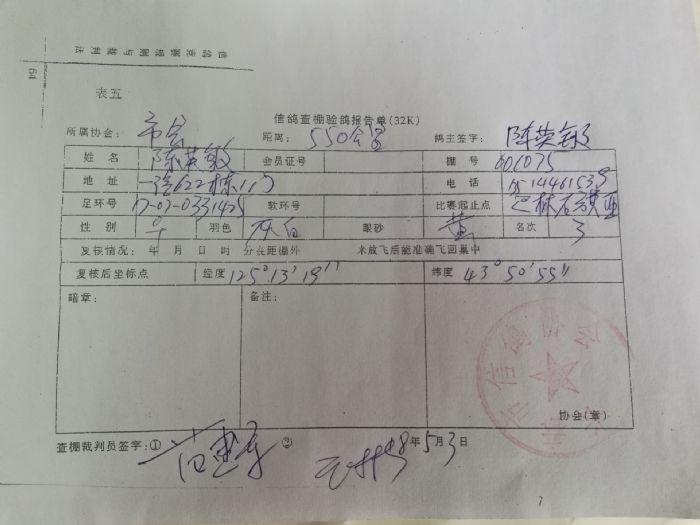 信鸽竞赛规则与裁判法
64
表五
信鸽查棚验鸽报告单(32K)
所属协会: 市会 距离: 550公里 鸽主签字:
姓名 会员证号 棚号 601075
地址 电话
足环号 软环号 比赛起止点 巴林右旗
性别 ♀ 羽色 灰白 眼砂 黄 名次 3
复核情况: 年 月 日 时 分在距棚外 米放飞后能准确飞回巢中
复核后坐标点 经度 125°13′19″ 纬度 43°50′55″
暗章: 备注:
协会(章)
查棚裁判员签字:① ② 8年5月3日